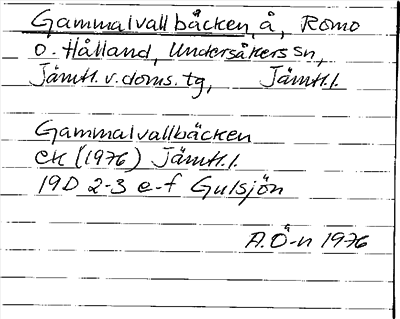 Gammalvallbäcken, å, Romo
o. Hålland, Undersåkers sn,
Jämtl. v. doms. tg, Jämtl. l.
Gammalvallbäcken
EK (1976) Jämtl. l.
19D 2-3 e-f Gulsjön
A.Ö-n 1976